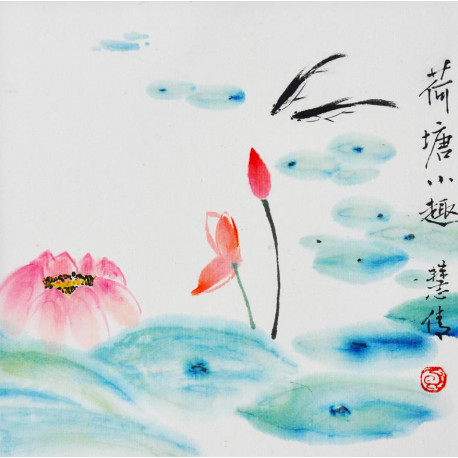 荷塘小趣
慧倩